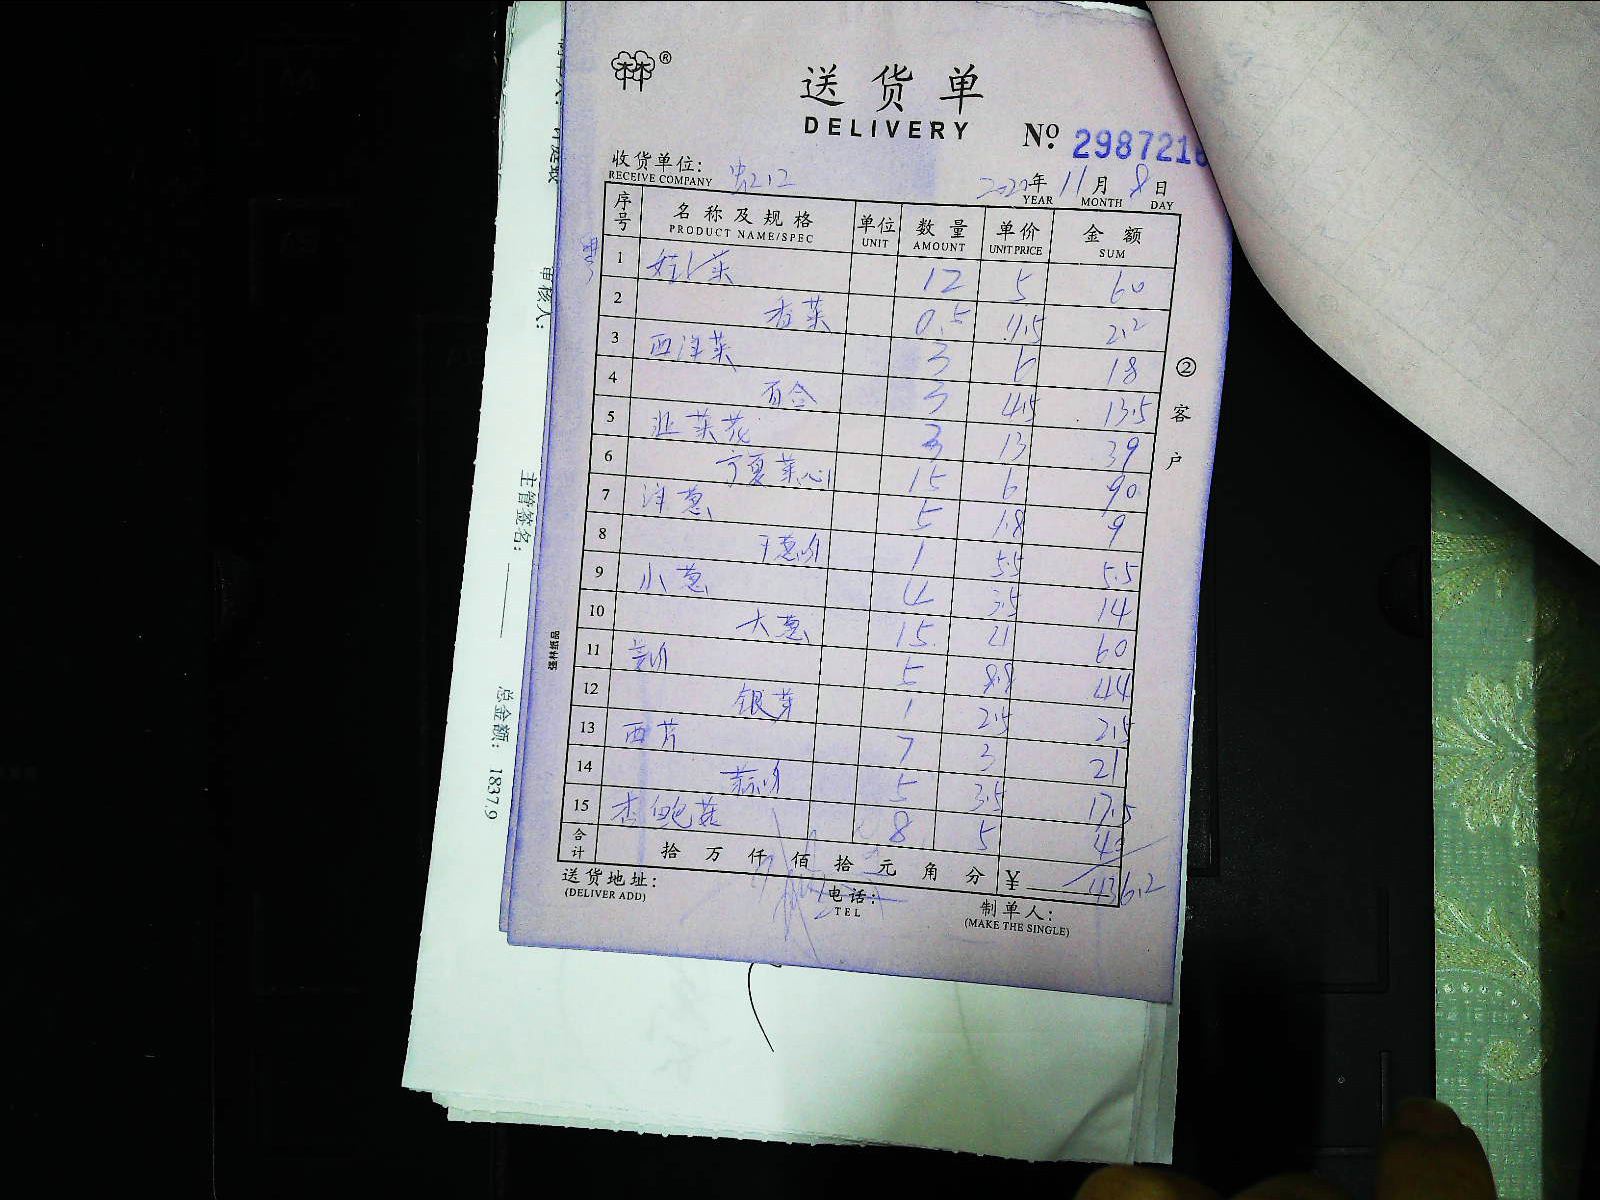 林®
送货单
DELIVERY
No. 2987216
收货单位:
RECEIVE COMPANY
2020年 11月 8日
YEAR MONTH DAY
序号 名称及规格 单位 数量 单价 金额
PRODUCT NAME/SPEC UNIT AMOUNT UNIT PRICE SUM
1 娃娃菜 12 5 60
2 香菜 0.5 4.5 2.2
3 西洋菜 3 6 18
4 百合 3 4.5 13.5
5 韭菜花 3 13 39
6 宁夏菜心 15 6 90
7 洋葱 5 1.8 9
8 干葱 1 5.5 5.5
9 小葱 4 3.5 14
10 大葱 15 21 60
11 5 8.8 44
12 银芽 1 2.5 2.5
13 西芹 7 3 21
14 5 3.5 17.5
15 杏鲍菇 8 5 40
合计 拾 万 仟 佰 拾 元 角 分 ¥ 436.2
送货地址: 电话: 制单人:
(DELIVER ADD) TEL (MAKE THE SINGLE)
②客户
强林纸品
审核人:
主管签名:
总金额: 1837.9